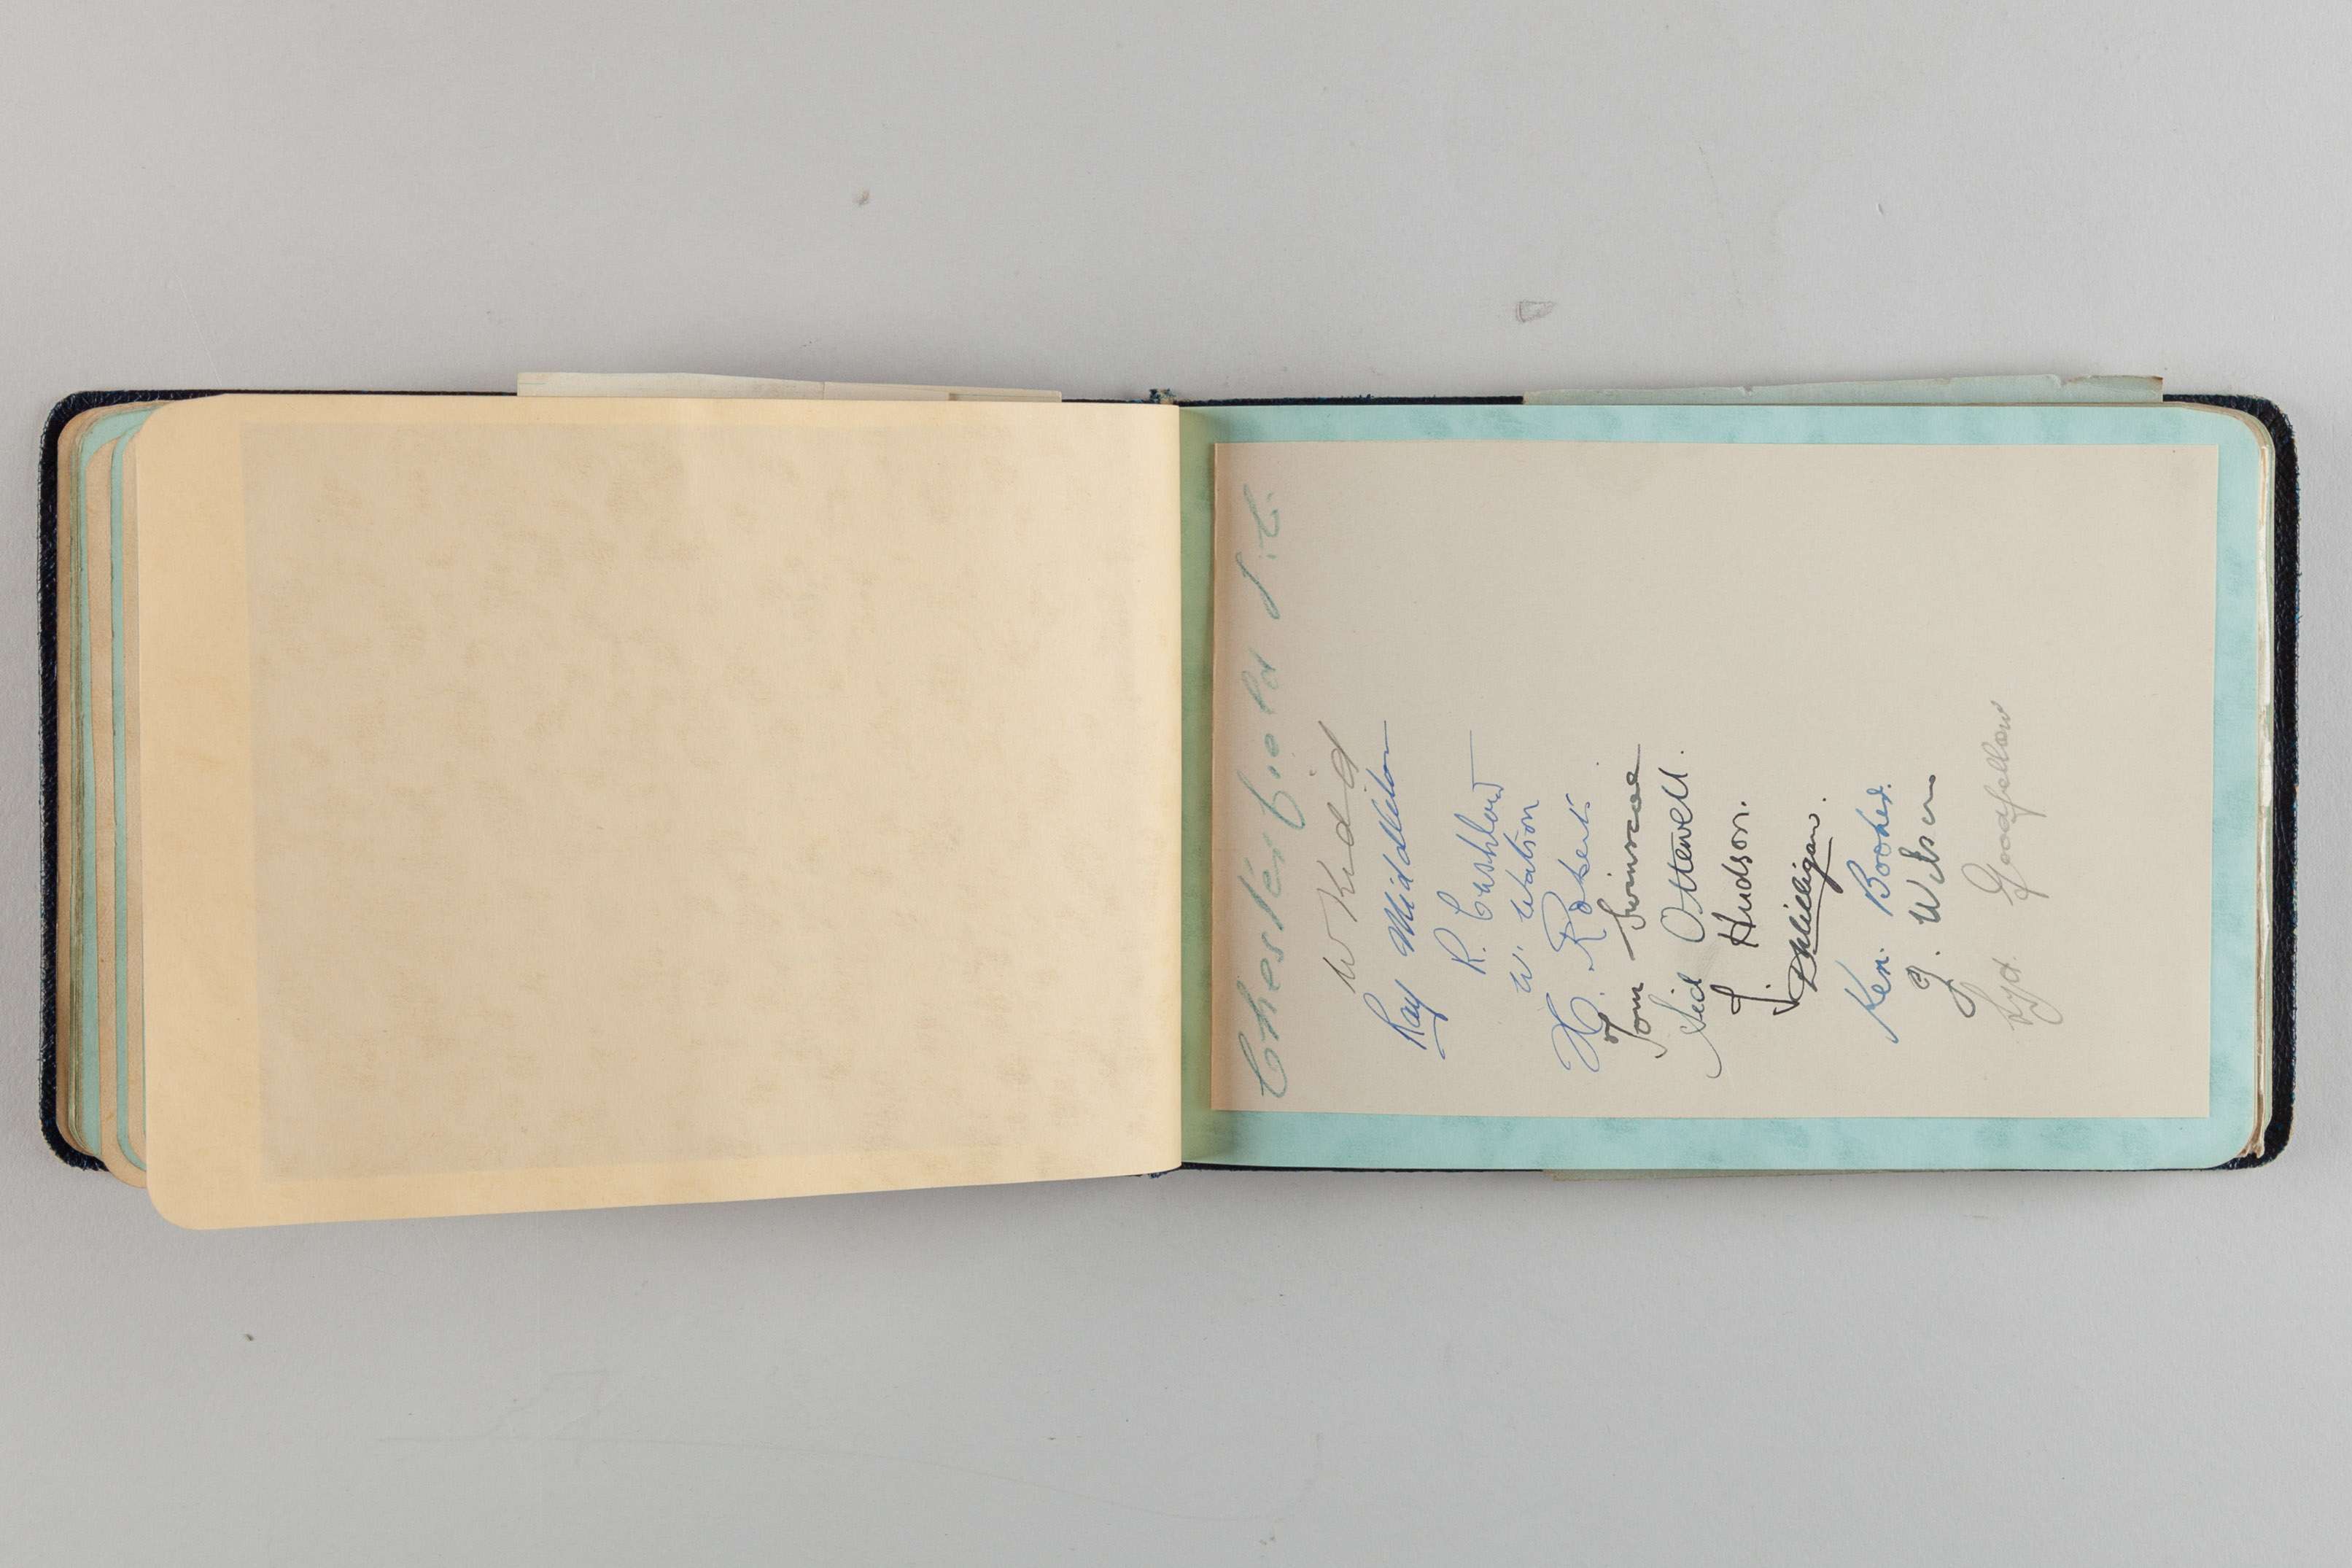 Chesterfield F.C.
W Kidd
Ray Middleton
R. Cushlow
W. Watson
H. Roberts
Tom Swinscoe
Sid Ottewell.
J. Hudson.
D Milligan.
Ken. Booker.
J. Wilson
Syd. Goodfellow